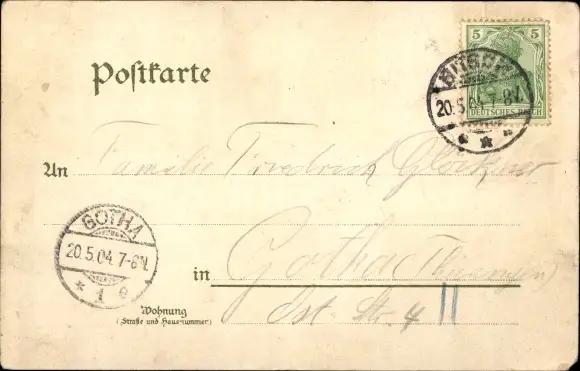 5 5
DEUTSCHES REICH
20.5.04.7-8V.
Postkarte
An Familie Friedrich Glöckner
GOTHA
20.5.04.7-8V.
* 1 e
in Gotha (Thüringen)
Wohnung
(Straße und Hausnummer)
Ost. Str. 4 II